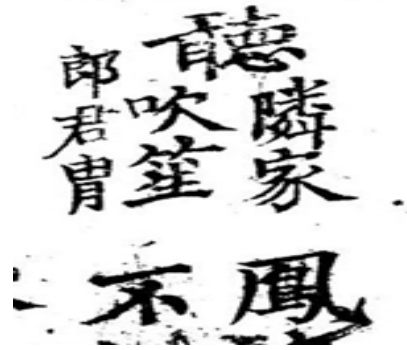 聽
隣家
吹笙
郎君冑
鳳
不